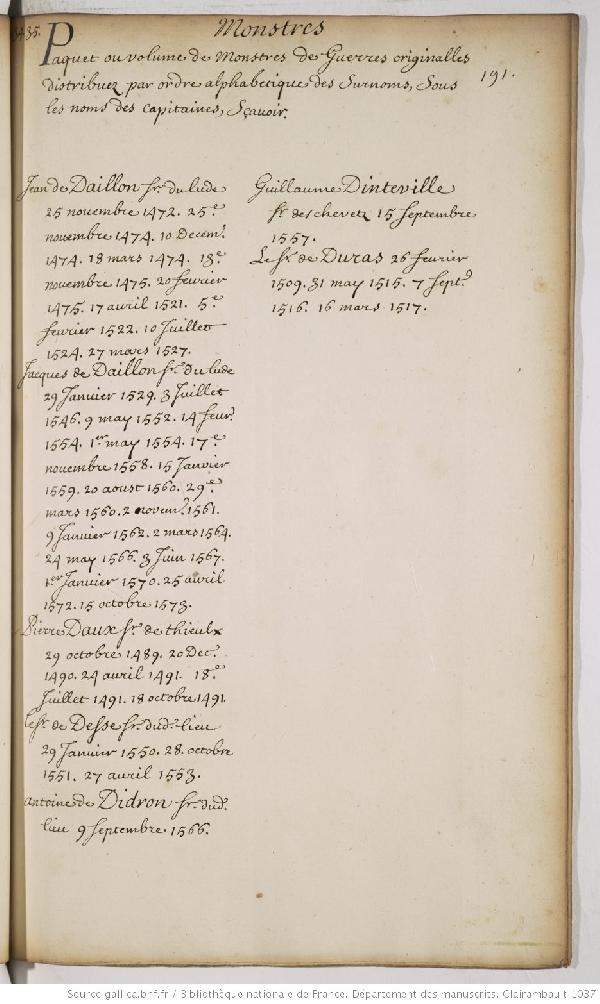 Monstres
Paquet ou volume de Monstres de Guerres originalles
distribuez par ordre alphabetique des Surnoms, Sous
les noms des Capitaines, Sçauoir.
191.
Jean de Daillon sr. du lude
25 novembre 1472. 25.e
novembre 1474. 10 Decem.
1474. 18 mars 1474. 13.e
novembre 1475. 20 fevrier
1475. 17 avril 1521. 5.e
fevrier 1522. 10 Juillet
1524. 27 mars 1527.
Jacques de Daillon sr. du lude
29 Janvier 1529. 3 Juillet
1546. 9 may 1552. 14 feur.
1554. 1er may 1554. 17.e
novembre 1558. 15 Janvier
1559. 20 aoust 1560. 29.e
mars 1560. 2 novem. 1561.
9 Janvier 1562. 2 mars 1564.
24 may 1566. 3 Juin 1567.
1er Janvier 1570. 25 avril
1572. 15 octobre 1573.
Pierre Daux sr. de thieulx
29 octobre 1489. 20 Dec.
1490. 24 avril 1491. 18.e
Juillet 1491. 18 octobre 1491
le sr. de Desse sr. dud. lieu
29 Janvier 1550. 28. octobre
1551. 27 avril 1553.
Antoine de Didron sr. dud.
lieu 9 Septembre 1566.
Guillaume Dinteville
sr. des chevetz 15 Septembre
1557.
Le sr. de Duras 26 feurier
1509. 31 may 1515. 7 Sept.
1516. 16 mars 1517.
Source gallica.bnf.fr / Bibliothèque nationale de France. Département des manuscrits. Clairambault 1037